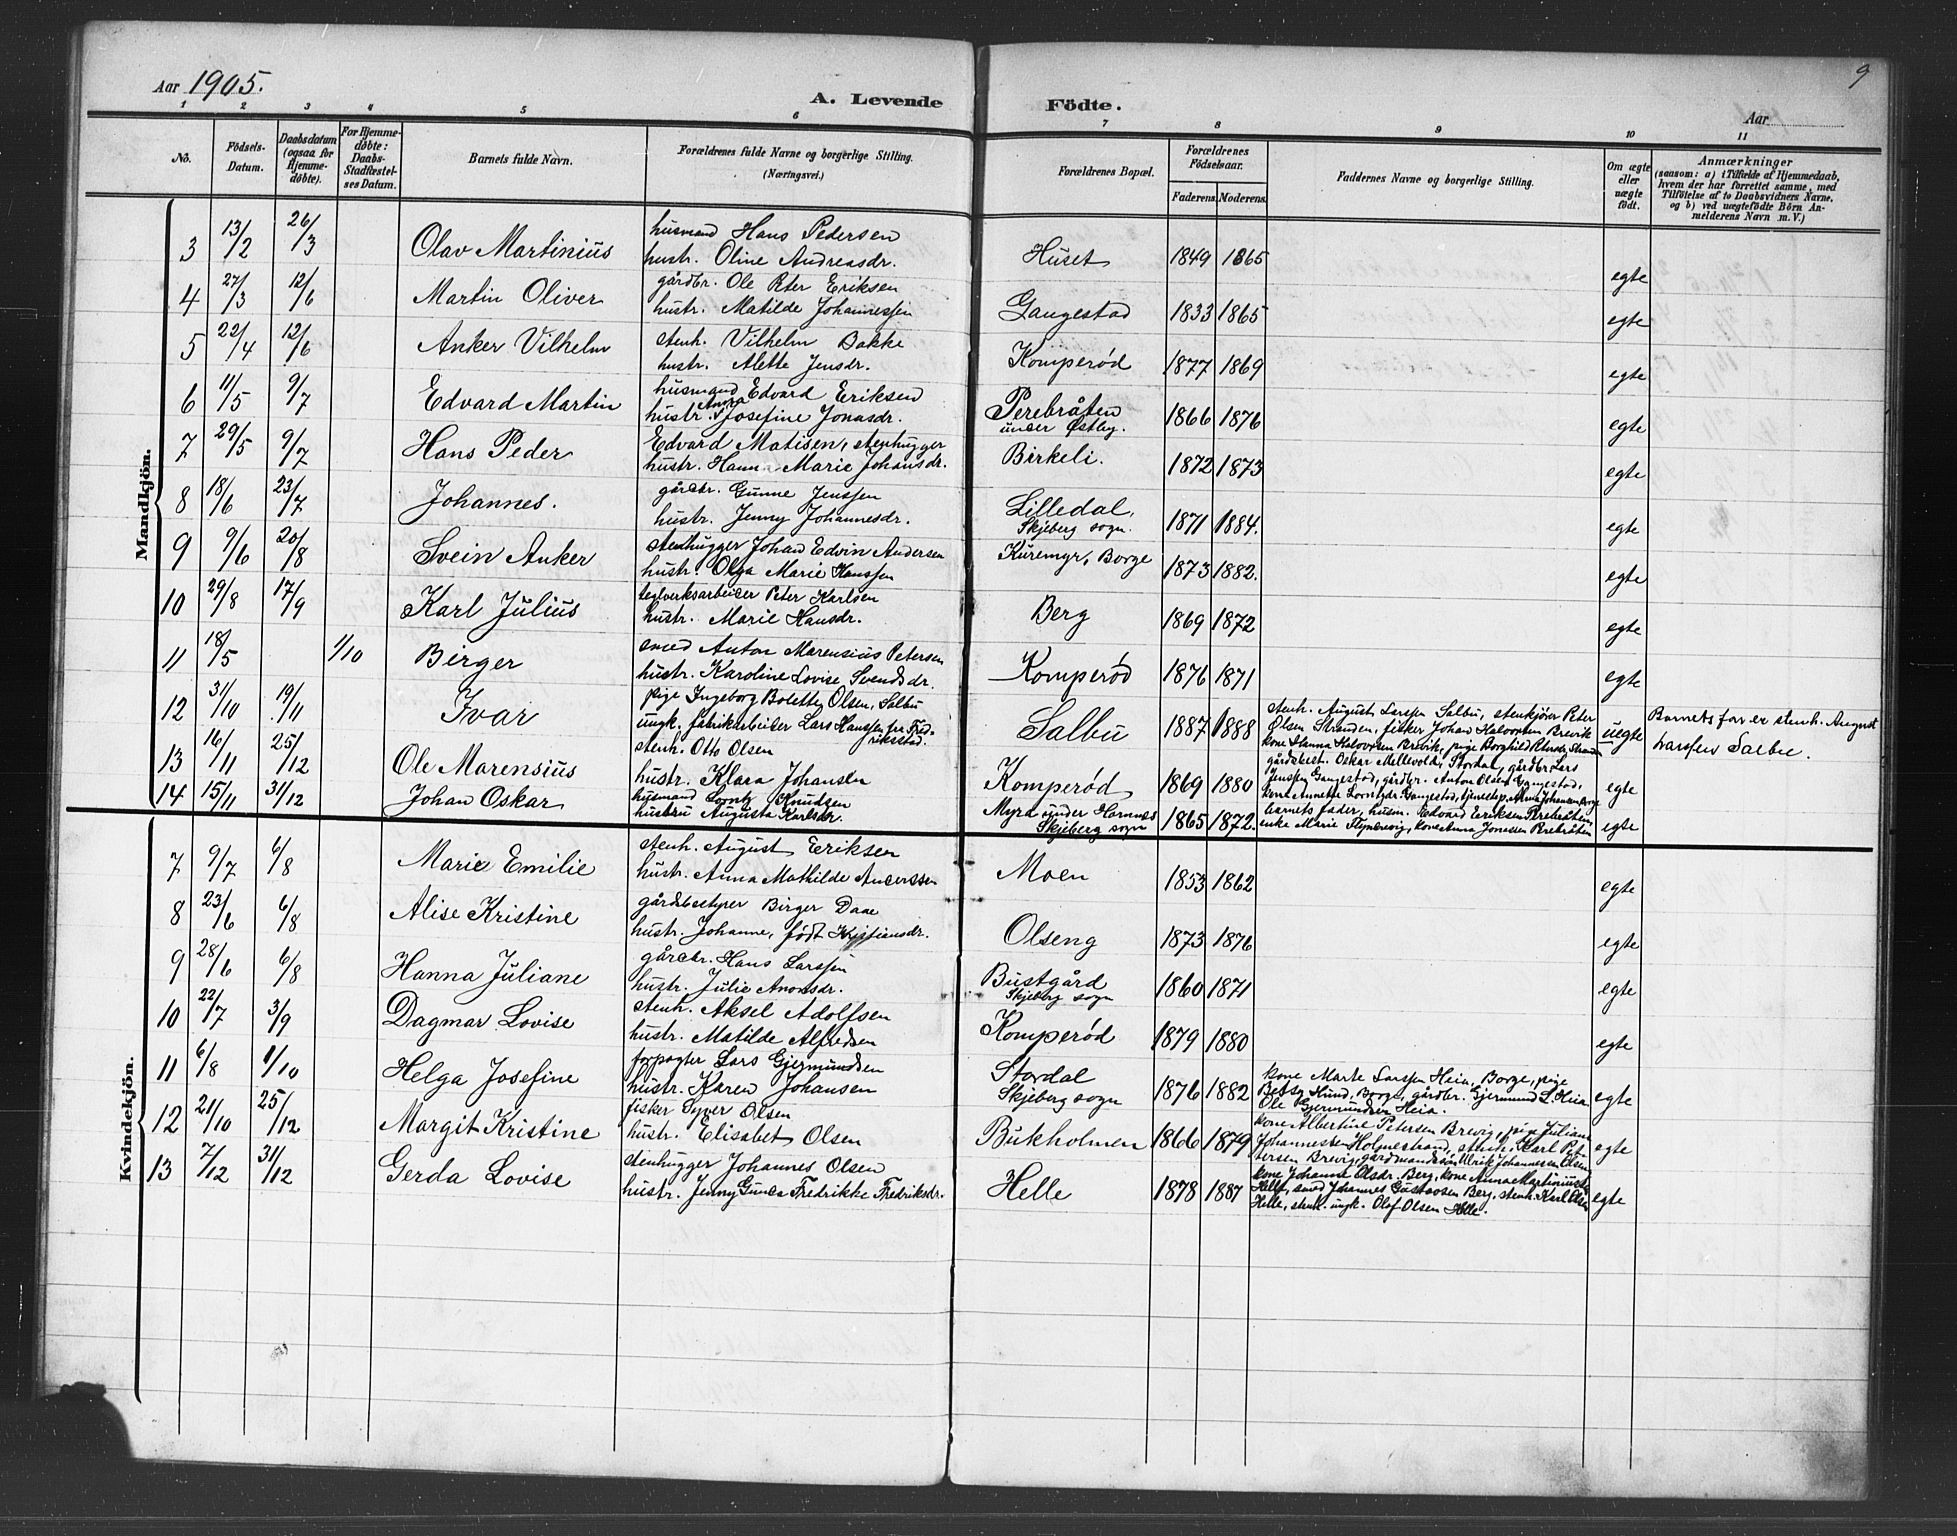 Aar 1905.
A. Levende Födte.
9
Aar
1 2 3 4 5 6 7 8 9 10 11
No.
Födsels-Datum.
Daabsdatum (ogsaa for Hjemme-døbte).
For Hjemme-døbte: Daabs-Stadfæstel-ses Datum.
Barnets fulde Navn.
Forældrenes fulde Navne og borgerlige Stilling. (Næringsvei.)
Forældrenes Bopæl.
Forældrenes Födselsaar.
Faderens. Moderens.
Faddernes Navne og borgerlige Stilling.
Om ægte eller uægte födt.
Anmærkninger
(saasom: a) i Tilfælde af Hjemmedaab, hvem der har forrettet samme, med Tilföielse af to Daabsvidners Navne. og b) ved uægtefödte Börn An-melderens Navn m. V.)
Mandkjön.
3 13/2 26/3 Olav Martinius husmand Hans Pedersen
hustr. Oline Andreasdr. Huset 1849 1865 egte
4 27/3 12/6 Martin Oliver gårdbr. Ole Peter Eriksen
hustr. Matilde Johannessen Gangestad 1833 1865 egte
5 22/4 12/6 Anker Vilhelm stenh. Vilhelm Bakke
hustr. Alette Jensdr. Komperød 1877 1869 egte
6 11/5 9/7 Edvard Martin husmand Edvard Eriksen
hustr. Anna Josefine Jonasdr. Perebråten under Østby. 1866 1876 egte
7 29/5 9/7 Hans Peder Edvard Matisen, stenhugger
hustr. Hanna Marie Johansdr. Birkeli. 1872 1873 egte
8 18/6 23/7 Johannes. gårdbr. Gunne Jenssen
hustr. Jenny Johannesdr. Lilledal, Skjeberg sogn. 1871 1884. egte
9 9/6 20/8 Svein Anker stenhugger Johan Edvin Andersen
hustr. Olga Marie Hanssen Kuremyr, Borge 1873 1882. egte
10 29/8 17/9 Karl Julius teglverksarbeider Peter Karlsen
hustr. Marie Hansdr. Berg 1869 1872 egte
11 18/5 1/10 Birger smed Anton Marensius Petersen
hustr. Karoline Lovise Svendsdr. Komperød 1876 1871 egte
12 31/10 19/11 Ivar pige Ingeborg Bolette Olsen, Salbu
ungk. fabrikarbeider Lars Hanssen fra Fredrikstad. Salbu 1887 1888 stenh. August Larssen Salbu, stenkjører Peter
Olsen Stranden, fisker Johan Halvorsen Brevik
kone Hanna Halvorsen Brevik, pige Borghild uegte Barnets far er stenh. August
Larssen Salbu.
13 16/11 25/12 Ole Marensius stenh. Otto Olsen
hustr. Klara Johansen Komperød 1869 1880 gårdsbest. Oskar Mellevold, Stordal, gårdbr. Lars
Jenssen Gangestad, gårdbr. Anton Olsen Gangestad,
kone Annette Gangestad, tjenestep. Anna Johansen Borge egte
14 15/11 31/12 Johan Oskar husmand Lorntz Knudsen
hustru Augusta Karlsdr. Myra under Hornnes Skjeberg sogn 1865 1872. barnets fader, husm. Edvard Eriksen Perebråten,
enke Marie kone Anna Jonassen Perebråten egte
Kvindekjön.
7 9/7 6/8 Marie Emilie stenh. August Eriksen
hustr. Anna Mathilde Anderssen Moen 1853 1862 egte
8 23/6 6/8 Alise Kristine gårdsbestyrer Birger Daae
hustr. Johanne, født Kristiansdr. Olseng 1873 1876 egte
9 28/6 6/8 Hanna Juliane gårdbr. Hans Larssen
hustr. Julie Antonsdr. Bustgård Skjeberg sogn 1860 1871 egte
10 22/7 3/9 Dagmar Lovise stenh. Aksel Adolfsen
hustr. Matilde Alfredsen Komperød 1879 1880 egte
11 6/8 1/10 Helga Josefine forpagter Lars Gjermundsen
hustr. Karen Johansen Stordal Skjeberg sogn 1876 1882 kone Marte Larssen Heia, Borge, pige
Betsy Hund, Borge, gårdbr. Gjermund L. Heia
Ole Gjermundsen Heia. egte
12 21/10 25/12 Margit Kristine fisker Syver Olsen
hustr. Elisabet Olsen Bukholmen 1866 1879 kone Albertine Petersen Brevig, pige Juliane
Johannessen Holmestrand, stenh. Karl Pe-
tersen Brevig, gårdmandssøn Ulrik Johannessen Olseng egte
13 7/12 31/12 Gerda Lovise stenhugger Johannes Olsen
hustr. Jenny Gunda Fredrikke Fredriksdr. Helle 1878 1887 kone Johanne Olsdr. Berg, kone Anna Martiniusen
Helle, smed Johannes Gustavsen Berg, stenh. Karl Olsen
Helle, stenh. ungk. Olaf Olsen Helle. egte